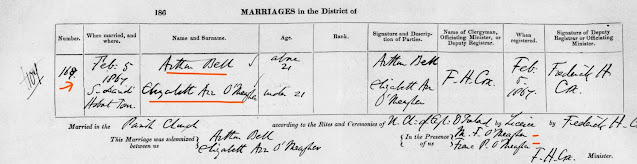 186 MARRIAGES in the District of
Number. When married, and where. Name and Surname. Age. Rank. Signature and Description of Parties. Name of Clergyman, Officiating Minister, or Deputy Registrar. When registered. Signature of Deputy Registrar or Officiating Minister.
169 Feb. 5 1867 St David's Hobart Town
Arthur Bell S above 21 Arthur Bell
Elizabeth Ann O'Meagher under 21 Elizabeth Ann O'Meagher
F. H. Cox. Feb 5. 1867. Frederick H Cox.
Married in the Parish Church according to the Rites and Ceremonies of U. Ch: of Eng: & Ireland by Licence by Frederick H. C
This Marriage was solemnized between us Arthur Bell Elizabeth Ann O'Meagher
In the Presence of us M. F. O'Meagher P. O'Meagher
F. H. Cox.